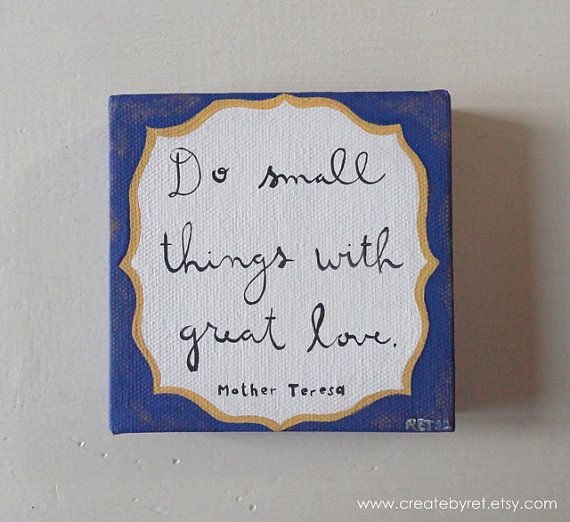 Do small
things with
great love.
Mother Teresa
RET
www.createbyret.etsy.com